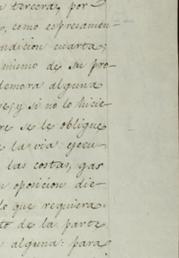 tercera, por
, como expresamen-
ndicion cuarta;
mismo de su pro
demora alguna
y si no lo hicie
re se le obligue
la via ejecu
las costas, gas
n oposicion
lo que requiera.
to de la parte
alguna: para